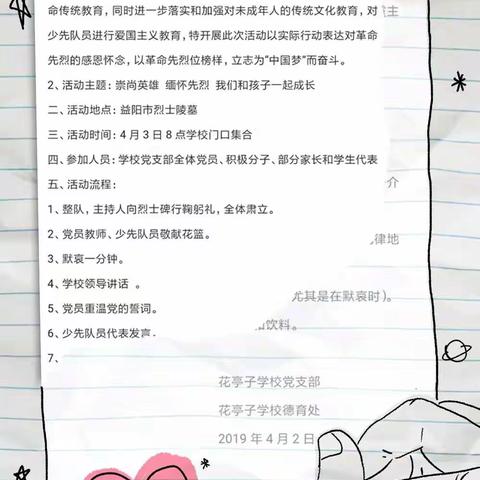 命传统教育，同时进一步落实和加强对未成年人的传统文化教育，对
少先队员进行爱国主义教育，特开展此次活动以实际行动表达对革命
先烈的感恩怀念，以革命先烈位榜样，立志为“中国梦”而奋斗。
2、活动主题：崇尚英雄 缅怀先烈 我们和孩子一起成长
二、活动地点：益阳市烈士陵墓
三、活动时间：4月3日8点学校门口集合
四、参加人员：学校党支部全体党员、积极分子、部分家长和学生代表
五、活动流程：
介
1、整队，主持人向烈士碑行鞠躬礼，全体肃立。
2、党员教师、少先队员敬献花篮。
律地
3、默哀一分钟。
4、学校领导讲话 。
尤其是在默哀时）。
5、党员重温党的誓词。
饮料。
6、少先队员代表发言。
7、
花亭子学校党支部
花亭子学校德育处
2019 年 4 月 2 日